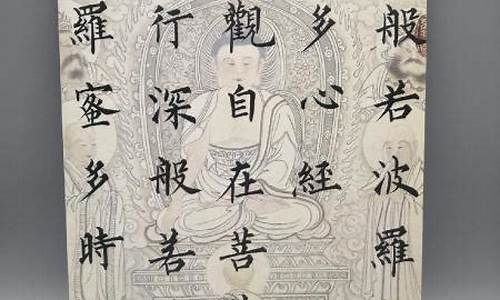 般若波羅
多心經
觀自在菩
行深般若
羅蜜多時